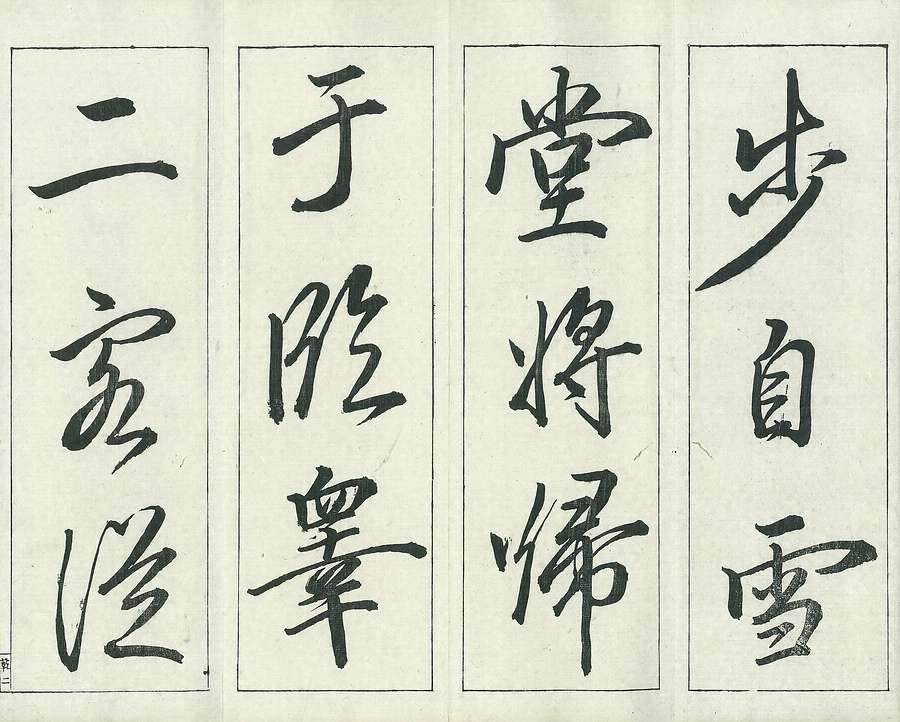 步自雪
堂將歸
于臨睾
二客從
乾二